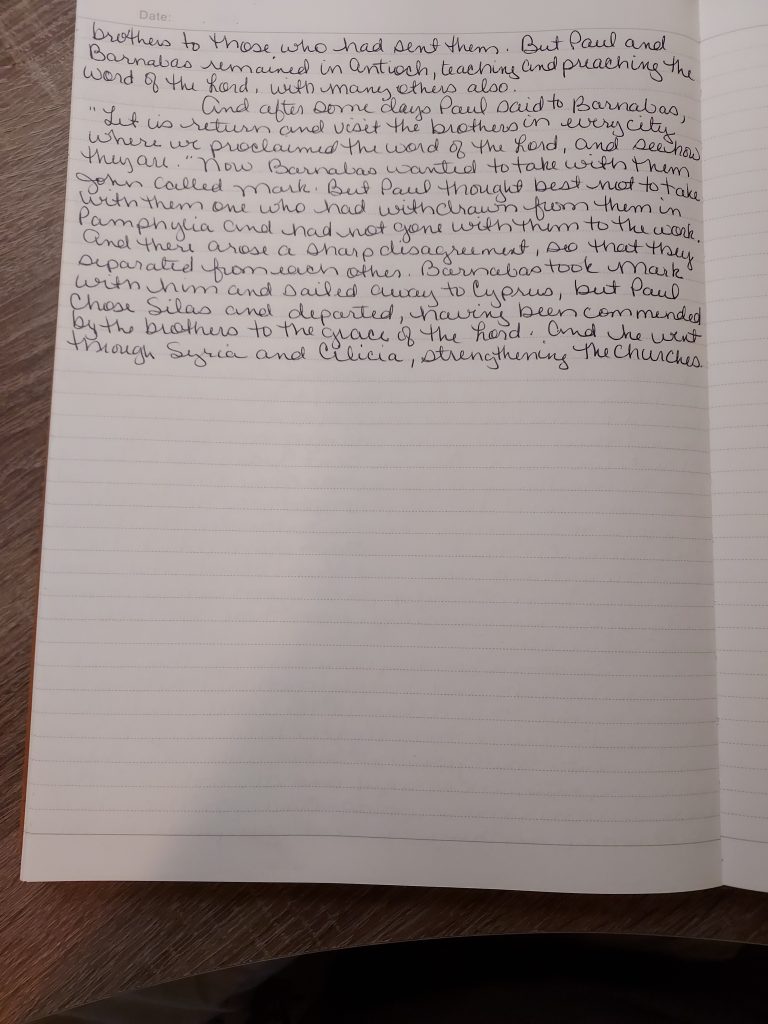 Date:
brothers to those who had sent them. But Paul and
Barnabas remained in Antioch, teaching and preaching the
word of the Lord, with many others also.
And after some days Paul said to Barnabas,
"Let us return and visit the brothers in every city
where we proclaimed the word of the Lord, and see how
they are." Now Barnabas wanted to take with them
John called Mark. But Paul thought best not to take
with them one who had withdrawn from them in
Pamphylia and had not gone with them to the work.
And there arose a sharp disagreement, so that they
separated from each other. Barnabas took Mark
with him and sailed away to Cyprus, but Paul
chose Silas and departed, having been commended
by the brothers to the grace of the Lord. And he went
through Syria and Cilicia, strengthening the churches.